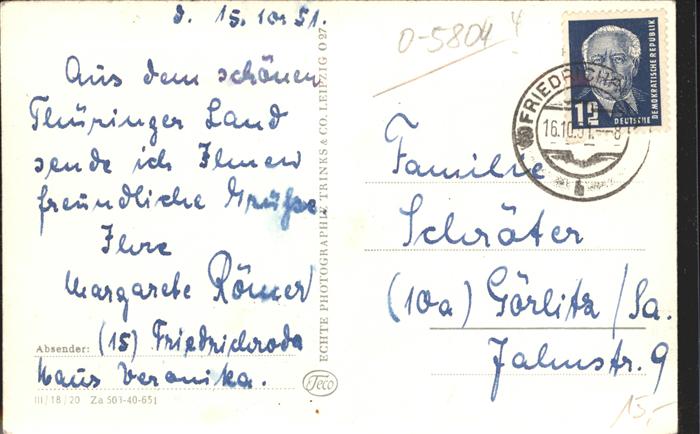 d. 15.10.51.
Aus dem schönen
Thüringer Land
sende ich Ihnen
freundliche Grüße
Ihre
Margarete Römer
Absender: (15) Friedrichroda
Haus Veronika.
III/18/20 Za 503-40-651
ECHTE PHOTOGRAPHIE TRINKS & CO. LEIPZIG O 27
Teco
0-5804 4
DEUTSCHE
DEMOKRATISCHE REPUBLIK
12
FRIEDRICHRODA
16.10.51.--8
b
Familie
Schröter
(10a) Görlitz/Sa.
Jahnstr. 9
15,-